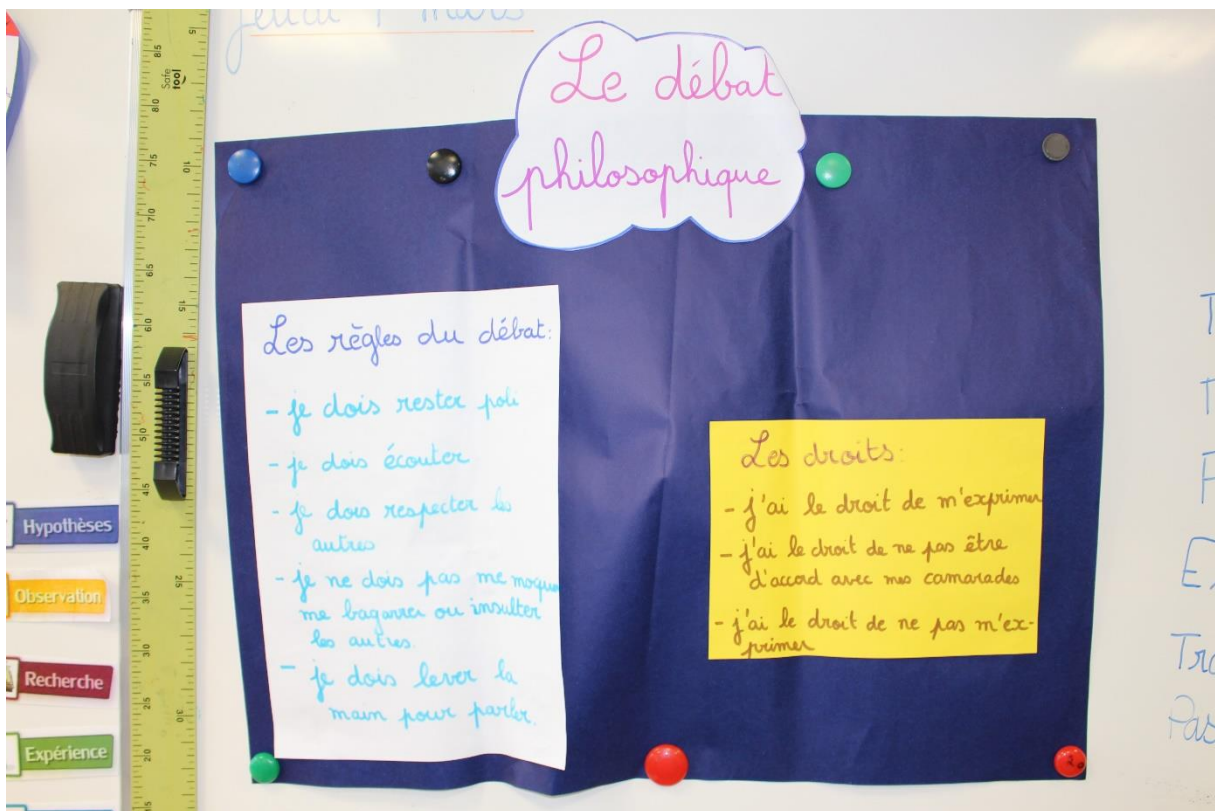 jeudi 1 mars
Le débat
philosophique
Les règles du débat:
- je dois rester poli
- je dois écouter
- je dois respecter les
autres
- je ne dois pas me moquer
me bagarrer ou insulter
les autres.
- je dois lever la
main pour parler.
Les droits:
- j'ai le droit de m'exprimer
- j'ai le droit de ne pas être
d'accord avec mes camarades
- j'ai le droit de ne pas m'ex-
primer
Safe
tool
Hypothèses
Observation
Recherche
Expérience